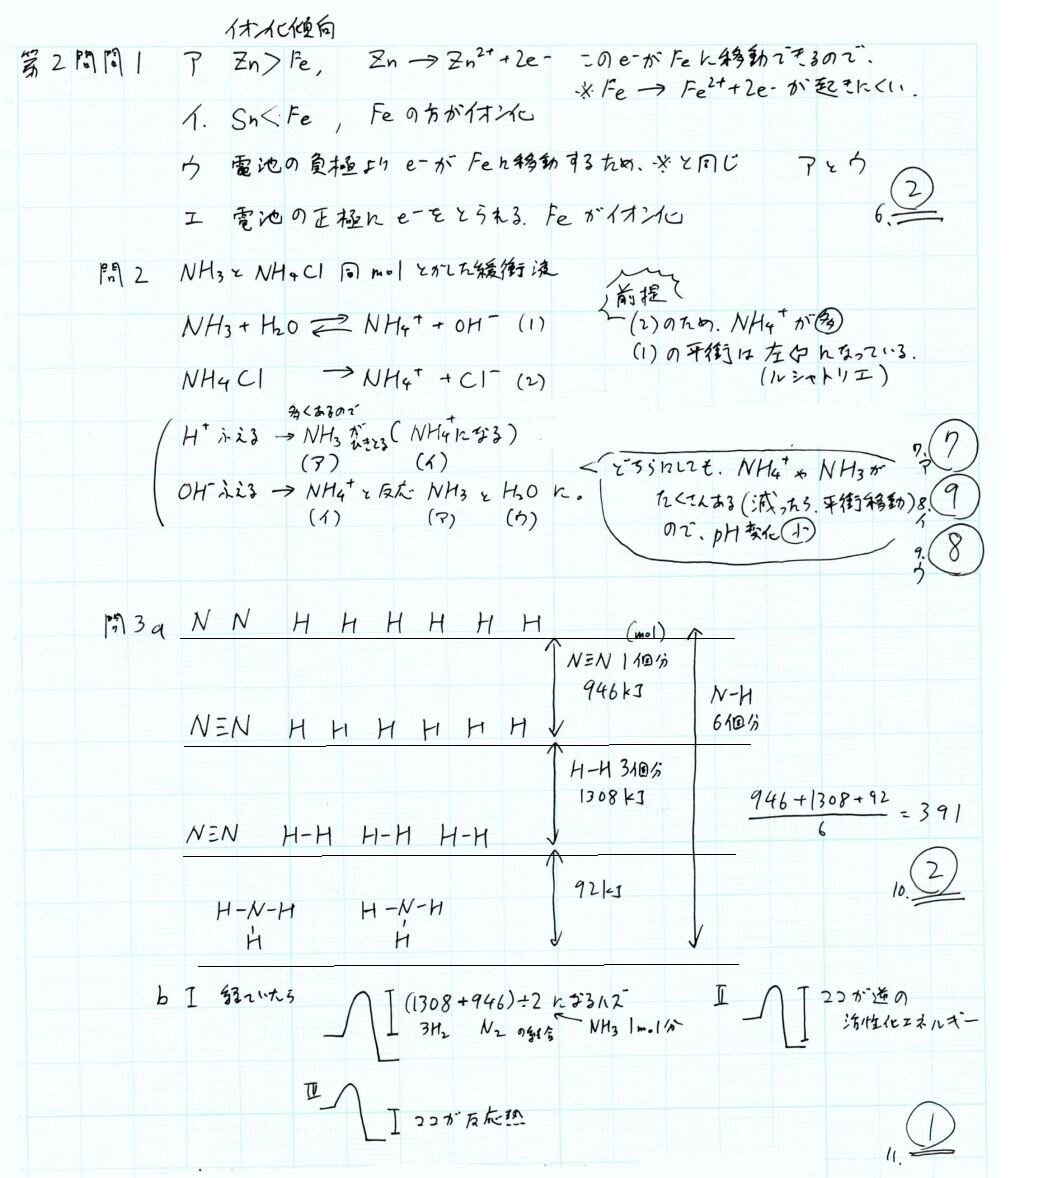 イオン化傾向
第2問問1 ア Zn>Fe, Zn→Zn²⁺+2e⁻ このe⁻がFeに移動できるので、
※Fe→Fe²⁺+2e⁻が起きにくい.
イ. Sn<Fe, Feの方がイオン化
ウ 電池の負極よりe⁻がFeに移動するため、※と同じ アとウ
②
エ 電池の正極にe⁻をとられる. Feがイオン化
6.
問2 NH₃とNH₄Cl 同molとかした緩衝液
前提
NH₃+H₂O⇄NH₄⁺+OH⁻ (1)
(2)のため、NH₄⁺が多
(1)の平衡は左⇦になっている.
(ルシャトリエ)
NH₄Cl →NH₄⁺+Cl⁻ (2)
多くあるので
H⁺ふえる→NH₃がひきとる(NH₄⁺になる)
(ア) (イ)
OH⁻ふえる→NH₄⁺と反応 NH₃とH₂Oに。
(イ) (ア) (ウ)
どちらにしても、NH₄⁺やNH₃が
たくさんある(減ったら、平衡移動)
ので、pH変化小
7.ア ⑦
8.イ ⑨
9.ウ ⑧
問3a N N H H H H H H
(mol)
N≡N 1個分
946kJ
N-H
6個分
N≡N H H H H H H
H-H 3個分
1308kJ
946+1308+92
6
=391
N≡N H-H H-H H-H
92kJ
10. ②
H-N-H H-N-H
H H
b I 経ていたら (1308+946)÷2になるハズ
3H₂ N₂の結合 NH₃ 1mol分
II ココが逆の
活性化エネルギー
III ココが反応熱
11. ①